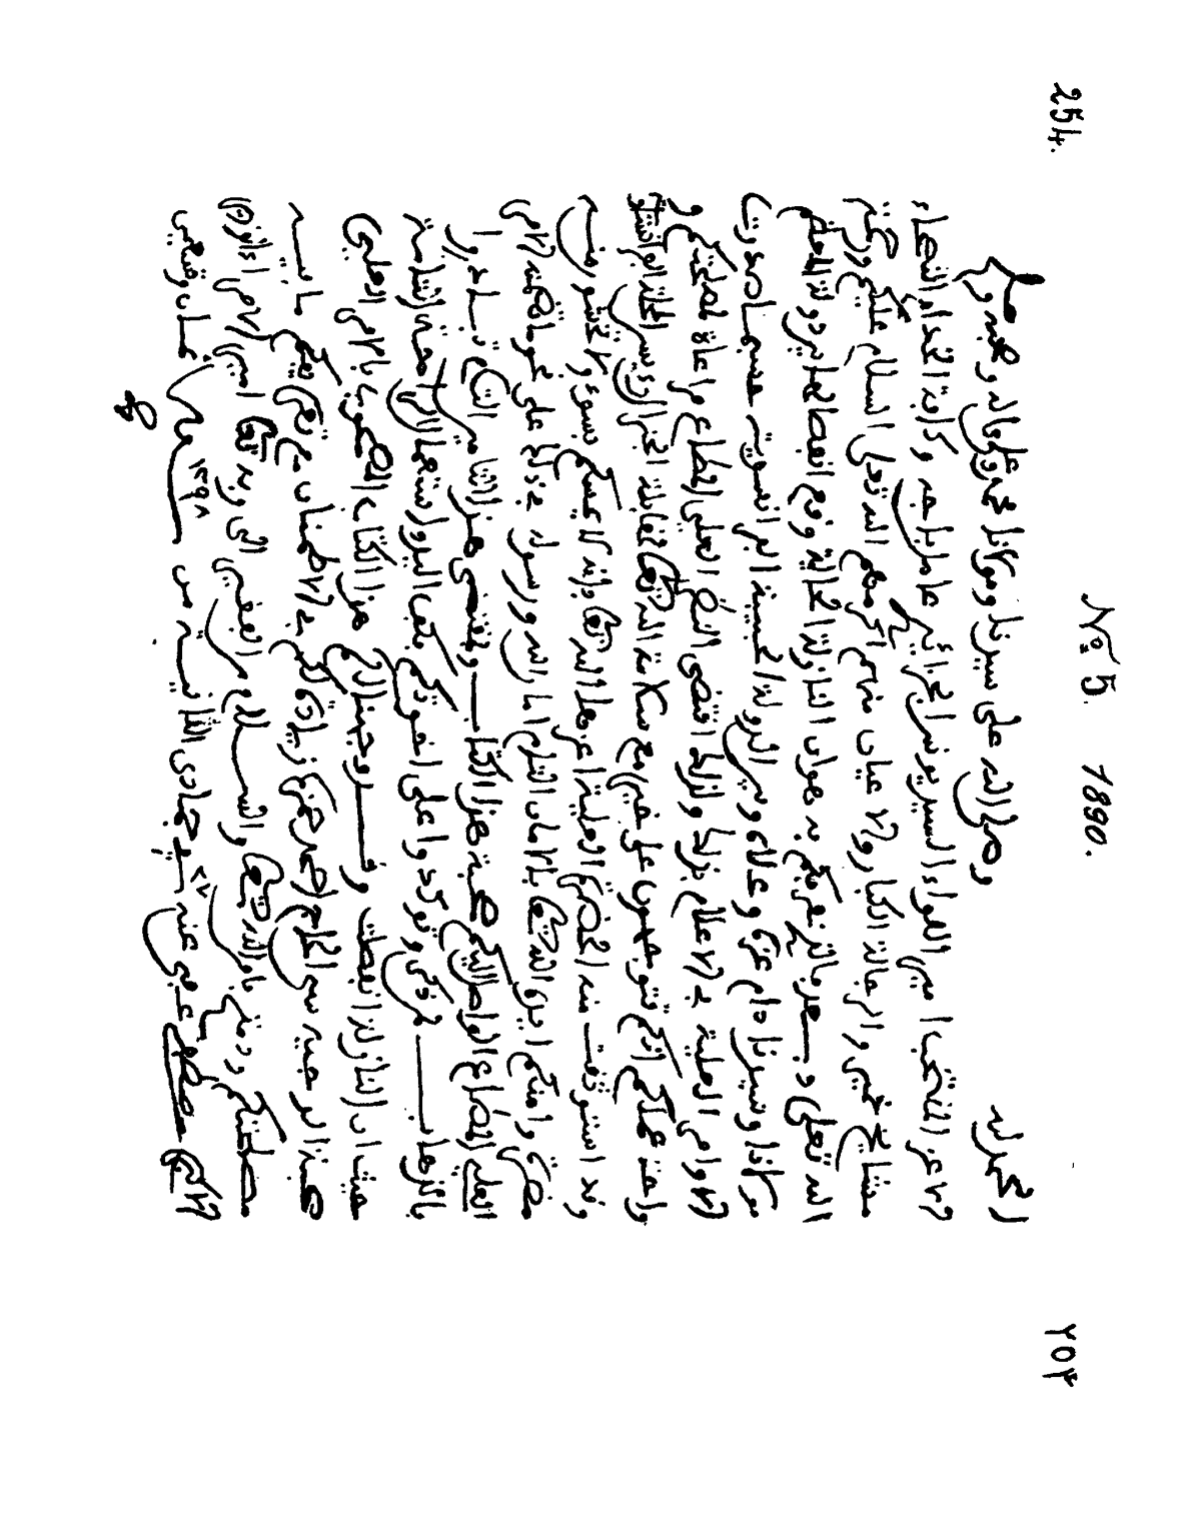 254.
N° 5. 1890.
٢٥٣
الحمد لله وصلى الله على سيدنا ومولانا محمد وعلى ءاله وصحبه وسلم
الاعز المنتخب امير اللواء السيد يونس الجزائري عامل باجه وكافة النبهاء
مشايخ خمير والرجالة الكبار والاعيان منهم اكرمهم الله تعلى السلام عليكم ورحمة
الله تعلى وبعد فالذي نعرفكم به هو ان النازلة الحالية وقع انفصالها بين دولة المعظم
مولانا وسيدنا دام عزه وعلاه وبين الدولة الحبيبة الفرانسوية حسبما صدرت
الاوامر العلية في الاعلام بذلك ولذلك اقتضى النظر العلي المطاع مراعاة لمصلحتكم و
راحة عملكم انكم تتوجهون على خير مع سلامة الله تعالى لمقابلة الجنرال رئيس المحلة
وقد استوثقت منه الحضرة العلية اعزها الله تعالى بانه لا يمسكم بسوء ولا تخشو منه
مضرة وامنكم ايده الله تعالى بالامان التام امان الله ورسوله في ذلك على نحو ما تضمنه الامر
العلي المطاع الواصل اليكم صحبة هذا الكتاب وبمقتضى هذا التام تبادروا
بالذهاب وتوكدوا على اخوتكم بكف اليد واستعمال الراحة التامة
حيث ان النازلة انفصلت وقد وجهنا لكم هذا الكتاب المصحوب بالامر العلي
صحبة الوجيه سي الحاج احمد حمزة زيادة لكم في الاطمئنان مع تعريفكم ما فيه
مصلحتكم ودمتم بامن الله تعالى والسلام من الفقير الى ربه تعالى امير الامراء الوزير
الاكبر مصطفى عفي عنه في ٢٧ جمادى الثانية من سنة ١٢٩٨